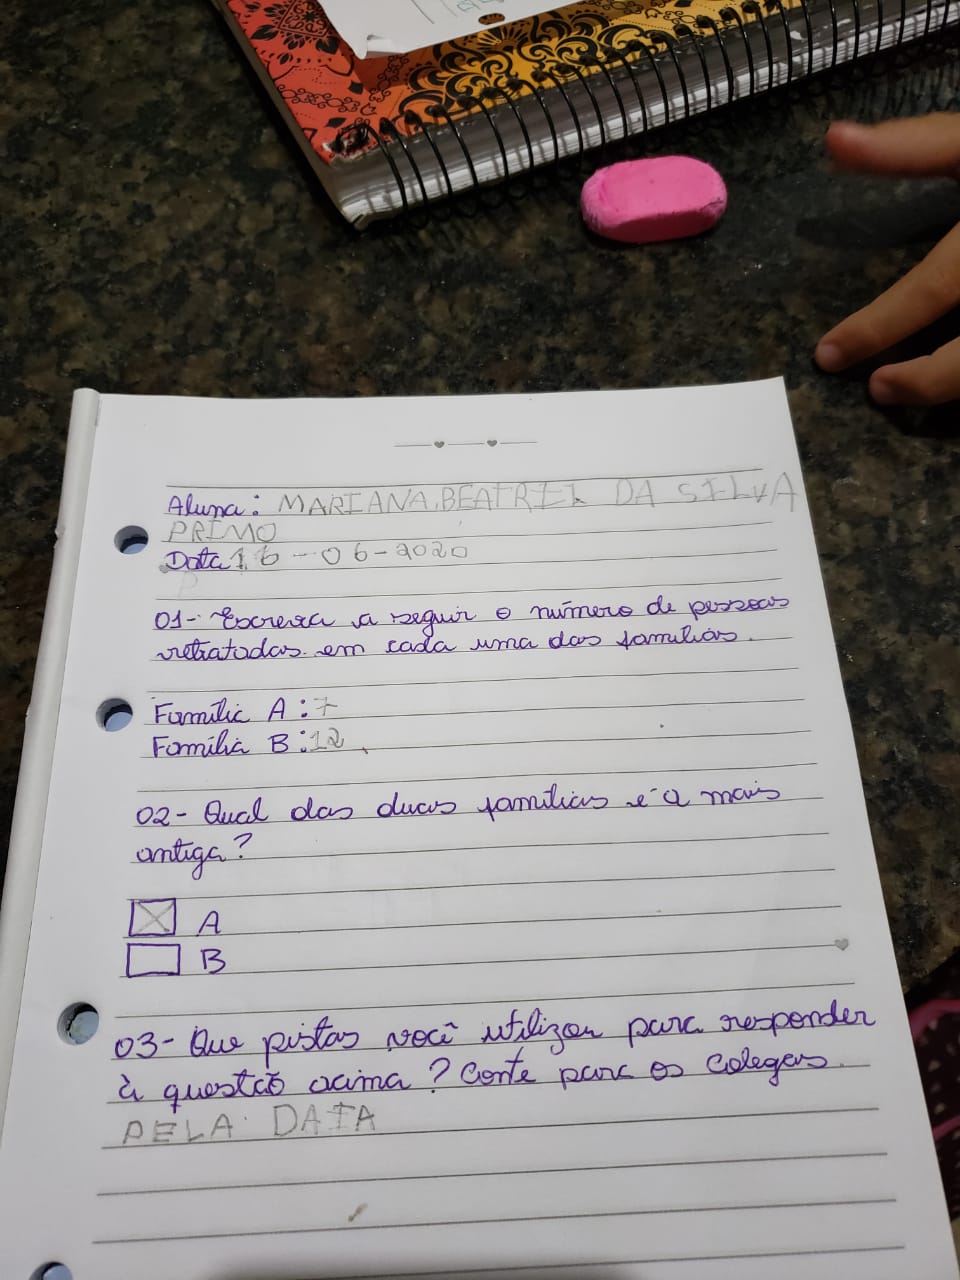 Aluna: MARIANA.BEATRIZ DA SILVA
PRIMO
Data 16-06-2020
01- Escreva a seguir o número de pessoas
retratadas em cada uma das famílias.
Família A: 7
Família B: 12
02- Qual das duas famílias é a mais
antiga?
A
B
03- Que pistas você utilizou para responder
à questão acima? Conte para os colegas.
PELA DATA